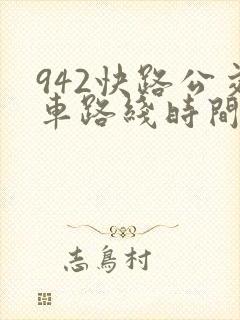 942快路公交
車路綫時間
志鳥村